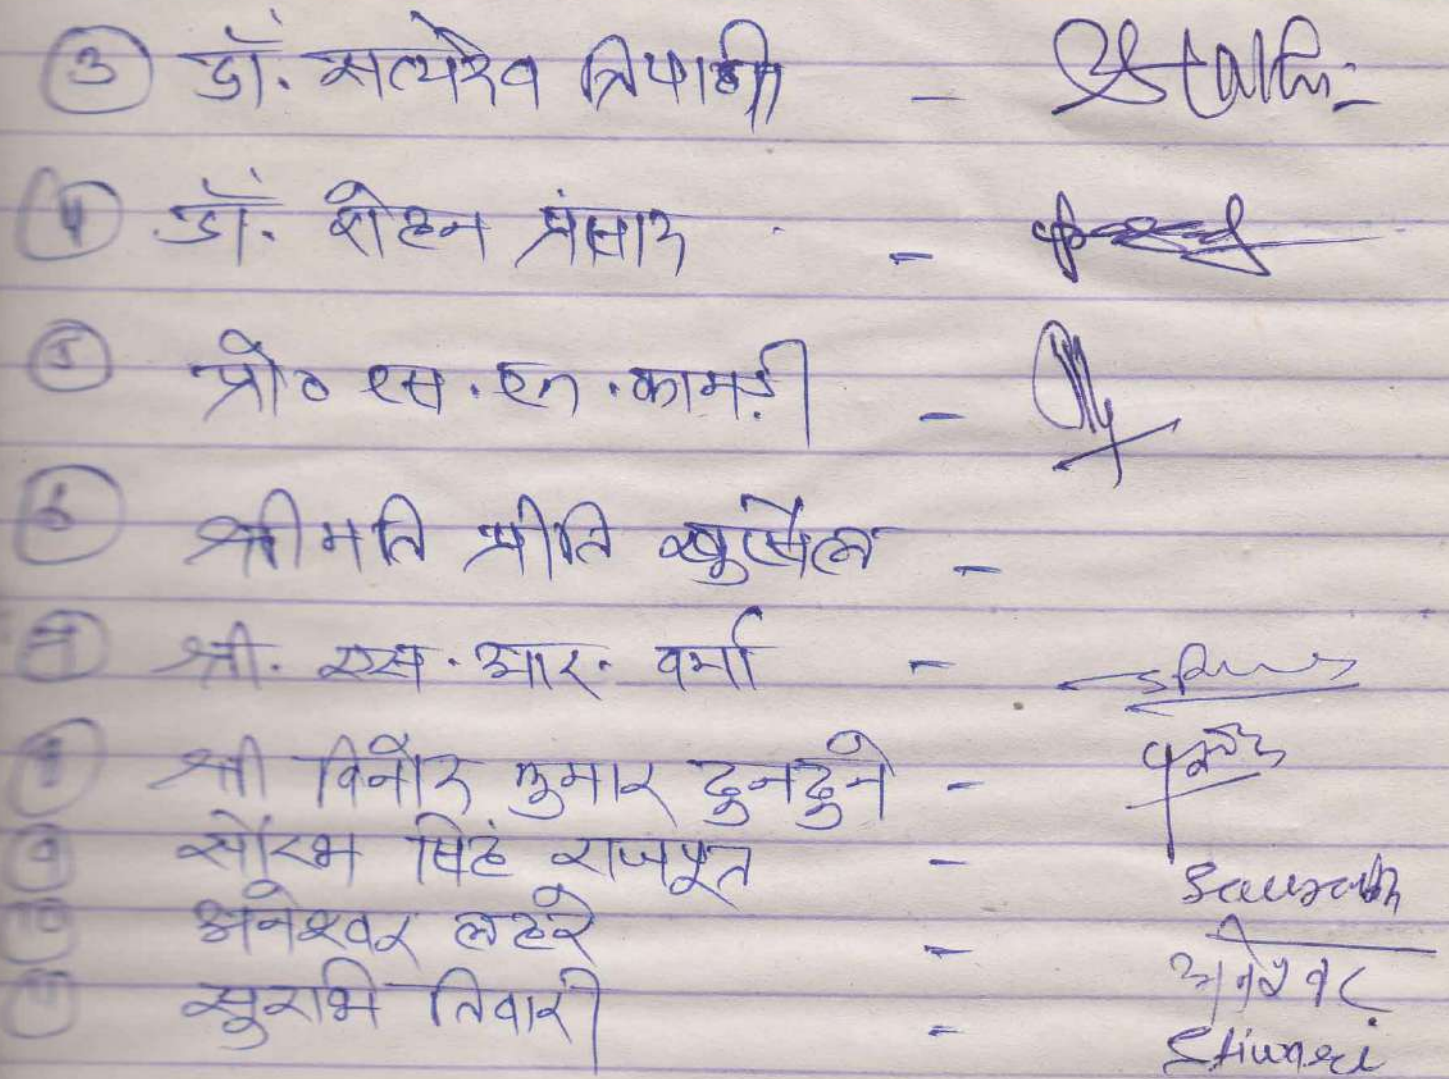 3 डॉ. सत्यदेव त्रिपाठी -
4 डॉ. रोहन प्रसाद -
5 प्रो० एस. एन. कामड़ी -
6 श्रीमति प्रीति -
7 श्री. एस. आर. वर्मा -
8 श्री विनोद कुमार दुनदुने -
9 सौरभ सिंह राजपूत - Saurabh
10 अनेश्वर लहरे - अनेश्वर
11 सुरभि तिवारी - Stiwari